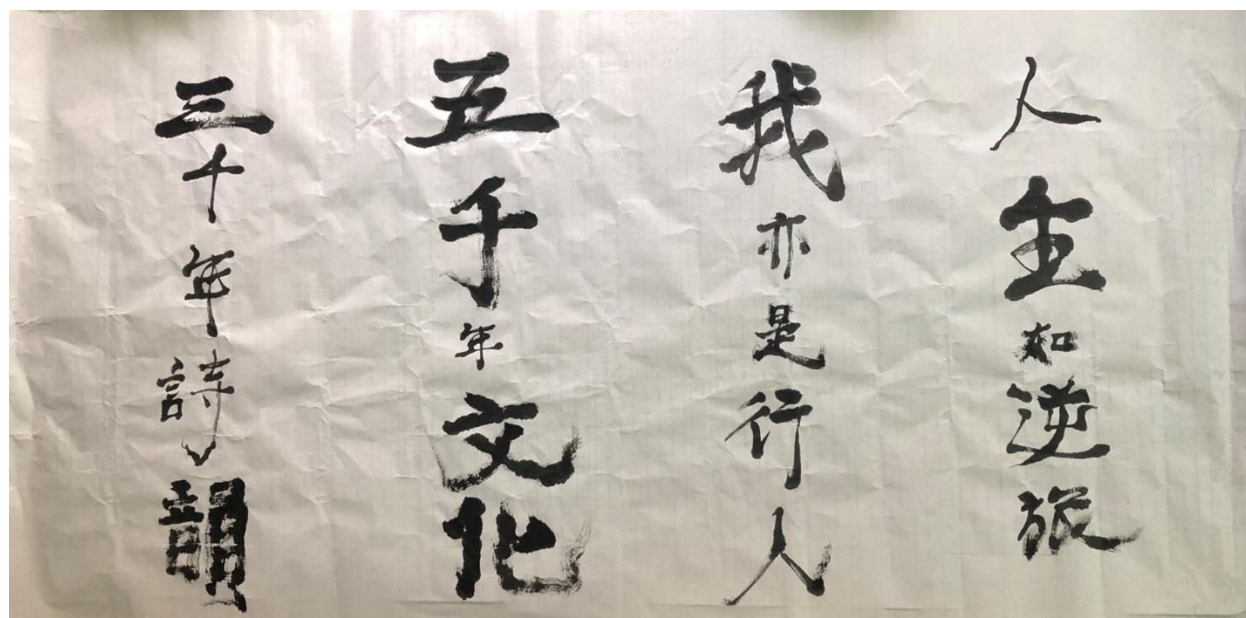 人生如逆旅
我亦是行人
五千年文化
三千年詩韻